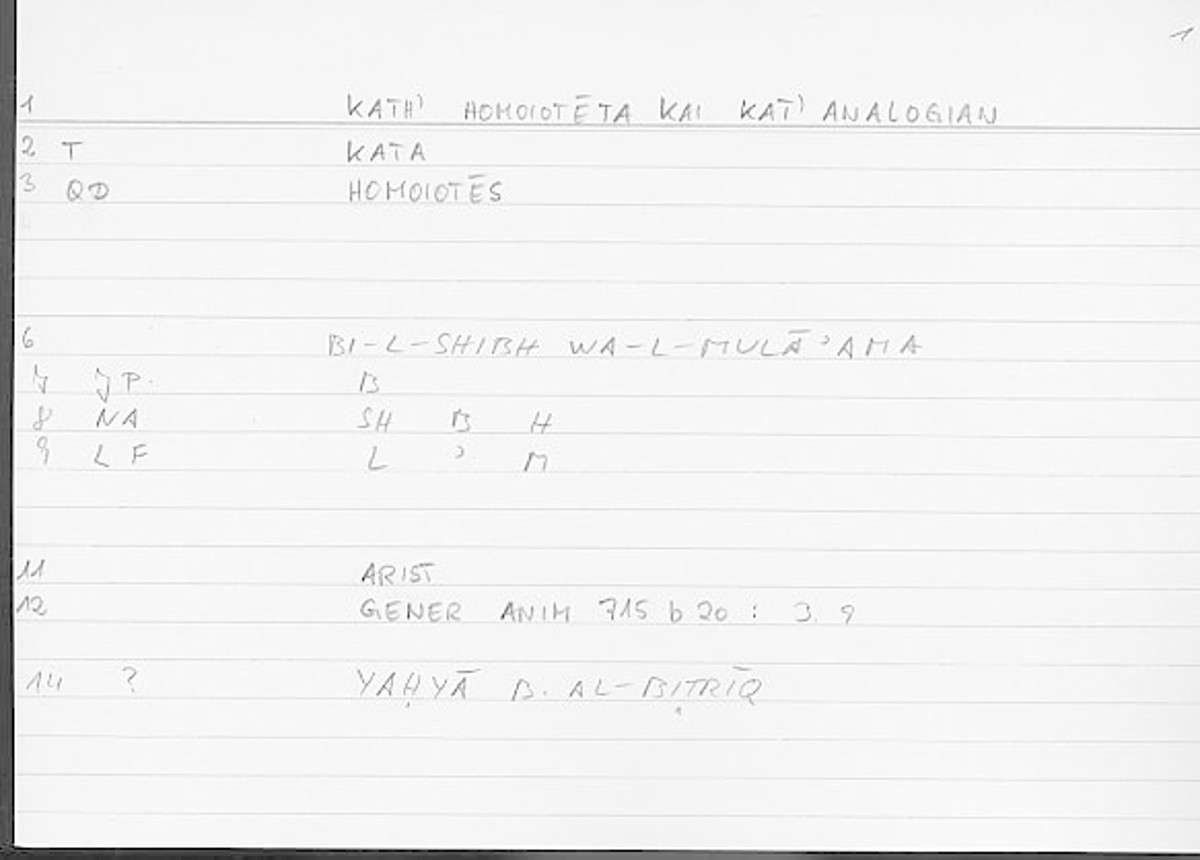 1
1 KATH' HOMOIOTĒTA KAI KAT' ANALOGIAN
2 T KATA
3 QD HOMOIOTĒS
6 BI-L-SHIBH WA-L-MULĀʾAMA
7 JP. B
8 NA SH B H
9 LF L ʾ M
11 ARIST
12 GENER ANIM 715 b 20 : 3.9
14 ? YAḤYĀ B. AL-BIṬRĪQ